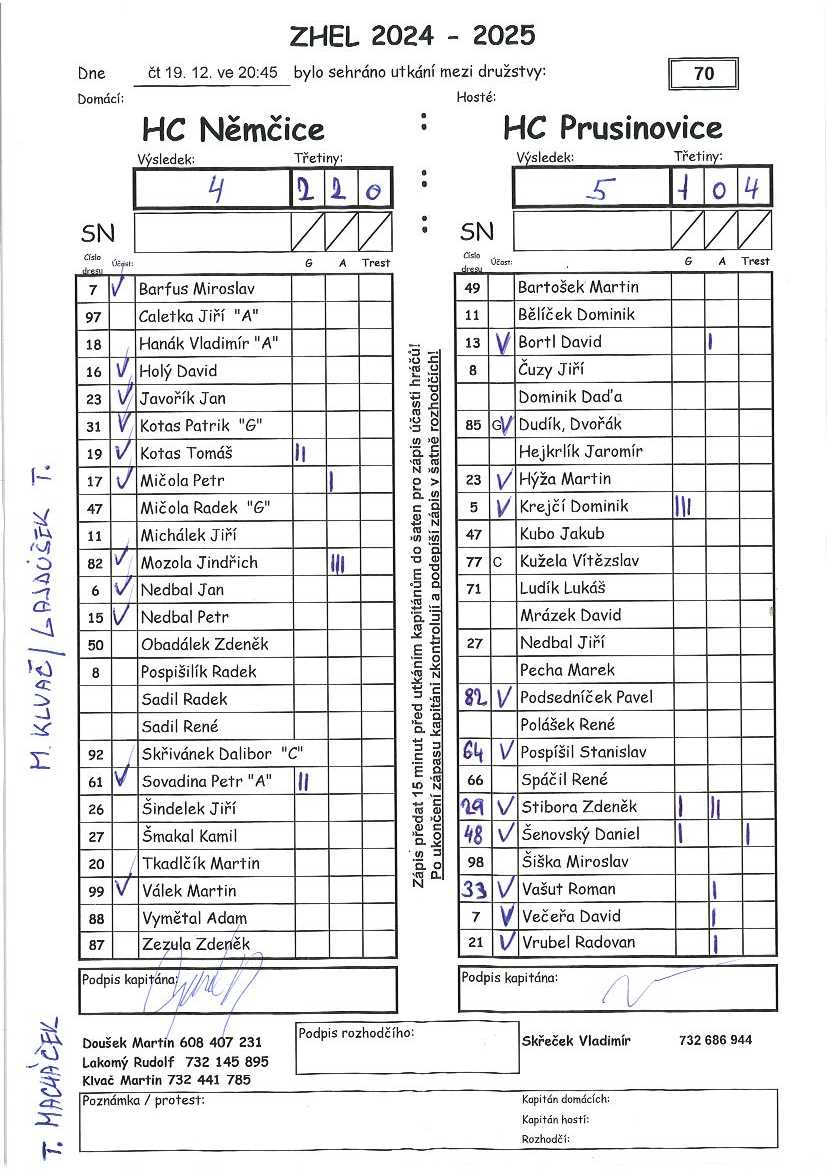 ZHEL 2024 - 2025
Dne čt 19. 12. ve 20:45 bylo sehráno utkání mezi družstvy: 70
Domácí: Hosté:
HC Němčice : HC Prusinovice
Výsledek: Třetiny: Výsledek: Třetiny:
4 2 2 0 : 5 1 0 4
SN : SN
Číslo dresu Účast: G A Trest
7 V Barfus Miroslav
97 Caletka Jiří "A"
18 Hanák Vladimír "A"
16 V Holý David
23 V Javořík Jan
31 V Kotas Patrik "G"
19 V Kotas Tomáš II
17 V Mičola Petr I
47 Mičola Radek "G"
11 Michálek Jiří
82 V Mozola Jindřich III
6 V Nedbal Jan
15 V Nedbal Petr
50 Obadálek Zdeněk
8 Pospišilík Radek
Sadil Radek
Sadil René
92 Skřivánek Dalibor "C"
61 V Sovadina Petr "A" II
26 Šindelek Jiří
27 Šmakal Kamil
20 Tkadlčík Martin
99 V Válek Martin
88 Vymětal Adam
87 Zezula Zdeněk
Podpis kapitána:
Zápis předat 15 minut před utkáním kapitánům do šaten pro zápis účasti hráčů!
Po ukončení zápasu kapitáni zkontrolují a podepíší zápis v šatně rozhodčích!
Číslo dresu Účast: G A Trest
49 Bartošek Martin
11 Bělíček Dominik
13 V Bortl David I
8 Čuzy Jiří
Dominik Daďa
85 G V Dudík, Dvořák
Hejkrlík Jaromír
23 V Hýža Martin
5 V Krejčí Dominik III
47 Kubo Jakub
77 C Kužela Vítězslav
71 Ludík Lukáš
Mrázek David
27 Nedbal Jiří
Pecha Marek
82 V Podsedníček Pavel
Polášek René
64 V Pospíšil Stanislav
66 Spáčil René
29 V Stibora Zdeněk I II
48 V Šenovský Daniel I I
98 Šiška Miroslav
33 V Vašut Roman I
7 V Večeřa David I
21 V Vrubel Radovan I
Podpis kapitána:
M. KLVAČ / GAJDŮŠEK T.
T. MACHÁČEK
Doušek Martin 608 407 231
Lakomý Rudolf 732 145 895
Klvač Martin 732 441 785
Podpis rozhodčího:
Skřeček Vladimír 732 686 944
Poznámka / protest:
Kapitán domácích:
Kapitán hostí:
Rozhodčí: